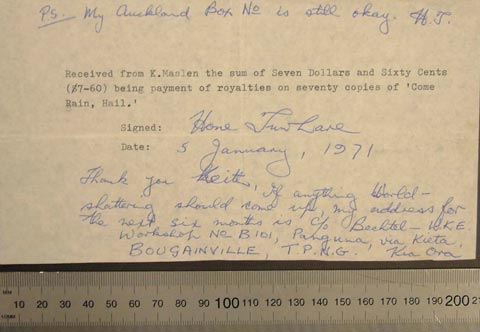 P.S. My Auckland Box No is still okay. H.T.
Received from K.Maslen the sum of Seven Dollars and Sixty Cents
($7-60) being payment of royalties on seventy copies of 'Come
Rain, Hail.'
Signed: Hone Tuwhare
Date: 5 January, 1971
Thank you Keith, If anything World-
shattering should come up, my address for
the next six months is c/o Bechtel-W.K.E.
Workshop No B101, Panguna, via Kieta,
BOUGAINVILLE, T.P.N.G. Kia Ora
10 20 30 40 50 60 70 80 90 100 110 120 130 140 150 160 170 180 190 200 21